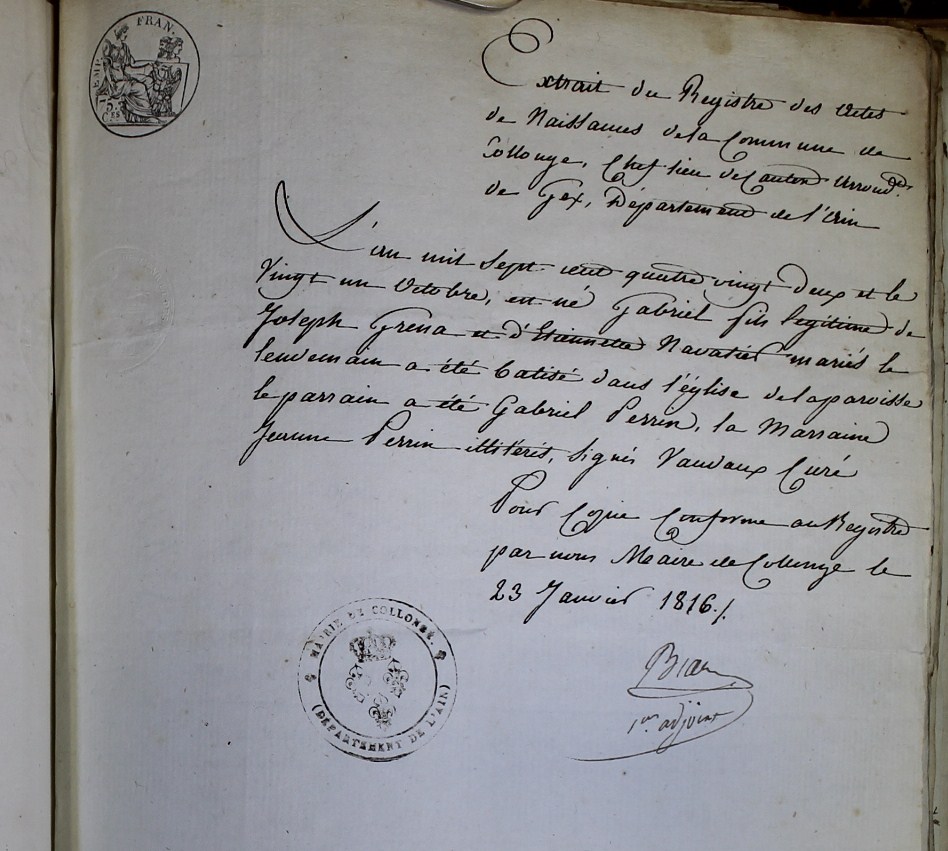 EMP. FRAN.
75
Ces
Extrait du Registre des Actes
de Naissances de la Commune de
Collonge, Chef lieu de Canton Arrond.
de Gex, Département de l'Ain
L'an mil sept cent quatre vingt deux et le
vingt un Octobre, est né Gabriel fils légitime de
Joseph Grena et d'Etiennette Navatier mariés le
lendemain a été batisé dans l'église de la paroisse
le parrain a été Gabriel Perrin, la Marraine
Jeanne Perrin illitérés, signés Vauvaux Curé
Pour Copie Conforme au Registre
par nous Maire de Collonge le
23 Janvier 1816./.
MAIRIE DE COLLONGE.
(DÉPARTEMENT DE L'AIN)
1er adjoint